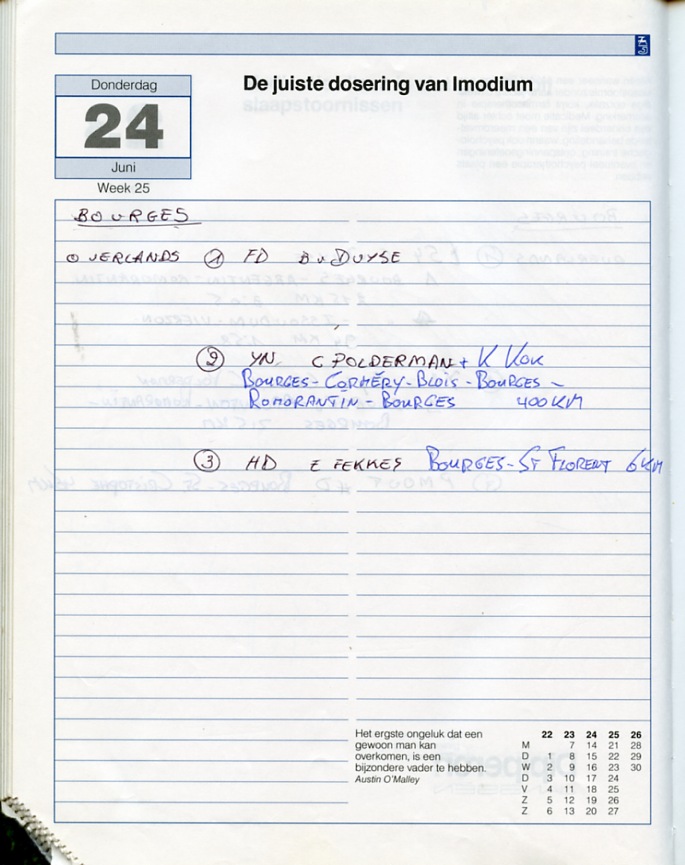 Donderdag
24
Juni
Week 25
De juiste dosering van Imodium
BOURGES
OVERLANDS ① FD B v DUYSE
② YN. C POLDERMAN + K KOK
BOURGES - CORMÉRY - BLOIS - BOURGES -
ROMORANTIN - BOURGES 400 KM
③ HD E FEKKES BOURGES - ST FLORENT 6 KM
Het ergste ongeluk dat een
gewoon man kan
overkomen, is een
bijzondere vader te hebben.
Austin O'Malley
22 23 24 25 26
M 7 14 21 28
D 1 8 15 22 29
W 2 9 16 23 30
D 3 10 17 24
V 4 11 18 25
Z 5 12 19 26
Z 6 13 20 27